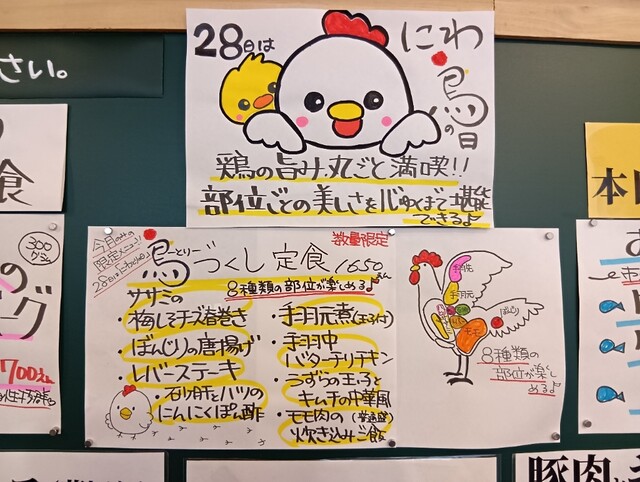 さい。
28日は
にわ
鳥
の日
鶏の旨み、丸ごと満喫!!
部位ごとの美しさをじゅくまで堪能
できる♪
食
本日
300
グラム
今月のみの
限定メニュー
28日はにわとりの日
鳥づくし定食
ーとりー
数量限定
1650
8種類の部位が楽しめる♪
ササミの
・梅しそチーズ春巻き
・ぼんじりの唐揚げ
・レバーステーキ
・砂肝とハツの
にんにくぽん酢
・手羽元煮
・手羽中
バターチリチキン
・うずらの玉子と
キムチの中華風
・モモ肉の
炊き込みご飯
手羽先
手羽元
ぼんじり
モモ
8種類の
部位が楽し
める♪
の
グ
700
豚肉